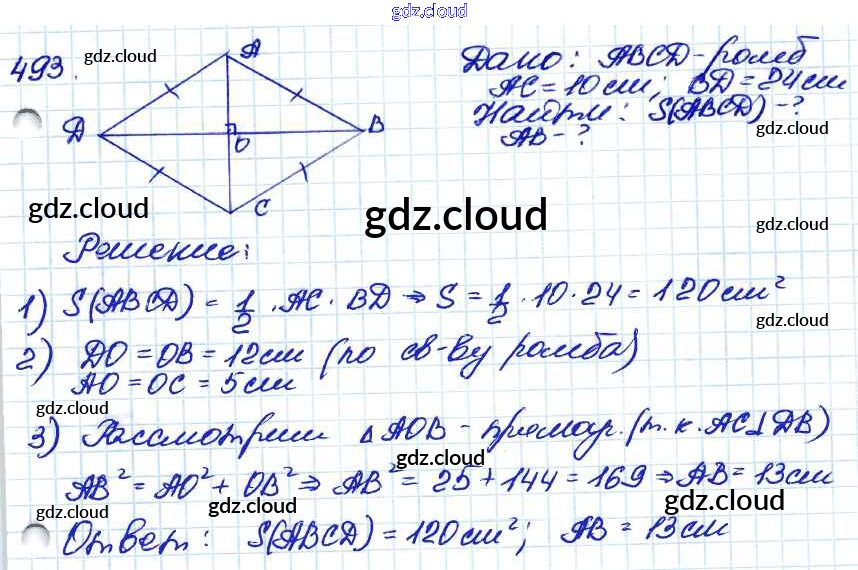 gdz.cloud
493. gdz.cloud
A
D
B
O
C
Дано: ABCD - ромб
AC = 10 см; BD = 24 см
Найти: S(ABCD) - ?
AB - ? gdz.cloud
gdz.cloud gdz.cloud gdz.cloud
Решение:
1) S(ABCD) = 1/2 · AC · BD ⇒ S = 1/2 · 10 · 24 = 120 см²
gdz.cloud
2) DO = OB = 12 см (по св-ву ромба)
AO = OC = 5 см
gdz.cloud gdz.cloud
3) Рассмотрим △ AOB - прямоуг. (т.к. AC ⊥ DB)
gdz.cloud
AB² = AO² + OB² ⇒ AB² = 25 + 144 = 169 ⇒ AB = 13 см
gdz.cloud gdz.cloud gdz.cloud
Ответ: S(ABCD) = 120 см²; AB = 13 см